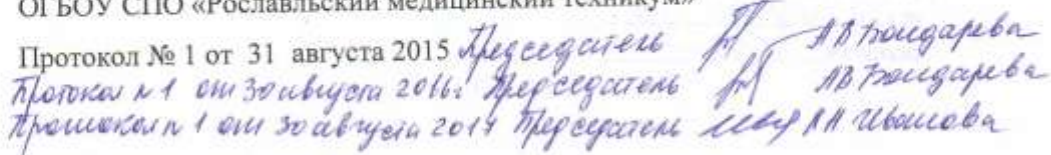 ОГБОУ СПО «Рославльский медицинский техникум»
Протокол № 1 от 31 августа 2015 Председатель А В Бондарева
Протокол № 1 от 30 августа 2016г Председатель А В Бондарева
Протокол № 1 от 30 августа 2017 Председатель